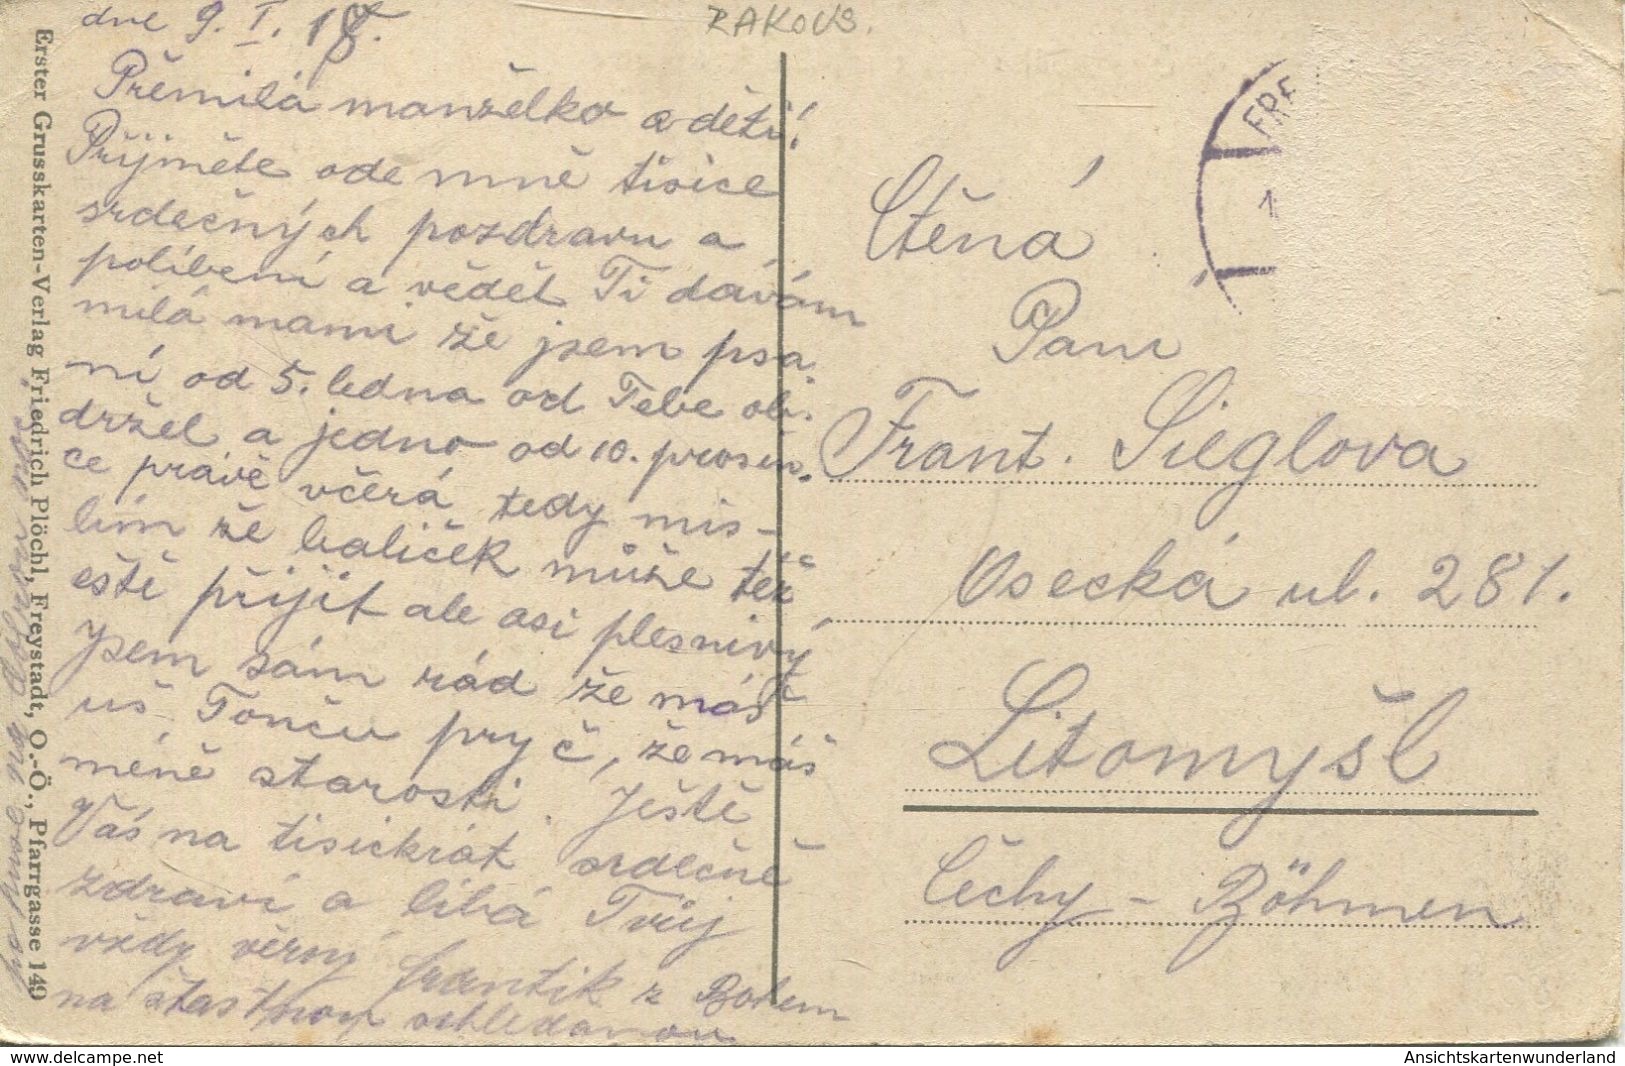 dne 9. I. 18.
RAKOUS.
Přemilá manželko a děti!
Přijměte ode mně tisice
srdečných pozdravu a
políbení a vědět Ti dávám
milá mami že jsem psa-
ní od 5. ledna od Tebe ob-
držel a jedno od 10. prosin-
ce právě včerá tedy mis-
lím že baliček může též
eště přijit ale asi plesnivý
jsem sám rád že máš
uš Tonču pryč, že máš
méně starosti. Ještě
Vás na tisickrát srdečně
zdraví a libá Tvůj
vždy věrný frantik z Bohem
na štastnou schledanou
Erster Grusskarten-Verlag Friedrich Plöchl, Freystadt, O.-Ö., Pfarrgasse 149
FRE
1
Ctěná
Paní
Frant. Sieglova
Osecká ul. 281.
Litomyšl
Čechy - Böhmen
www.delcampe.net
Ansichtskartenwunderland